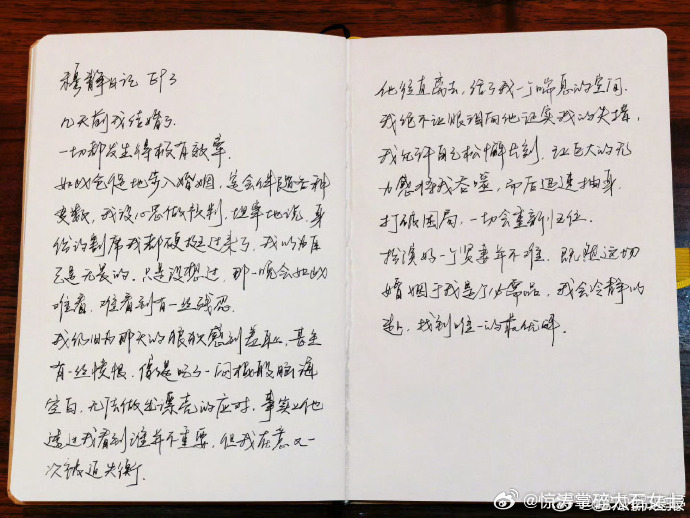 穆静日记 EP3
几天前我结婚了.
一切都发生得极有效率.
如此仓促地步入婚姻,定会伴随各种
变数,我没心思做预判,坦率地说,身
份的割席我都硬挺过来了,我以为自
己是无畏的.只是没想过,那一晚会如此
难看,难看到有一丝残忍.
我仍旧为那天的狼狈感到羞耻,甚至
有一丝愤恨,像是吃了一闷棍般脑海
空白,无法做出漂亮的应对,事实上他
透过我看到谁并不重要,但我在意又一
次被迫失衡了.
他径直离去,给了我一个喘息的空间.
我绝不让眼泪向他证实我的失措,
我允许自己松懈片刻,让巨大的无
力感将我吞噬,而后迅速抽身.
打破困局,一切会重新归位.
扮演好一个贤妻并不难.既然这切
婚姻于我是个必需品,我会冷静的
找到唯一的最优解.
@惊涛掌碎大石女士